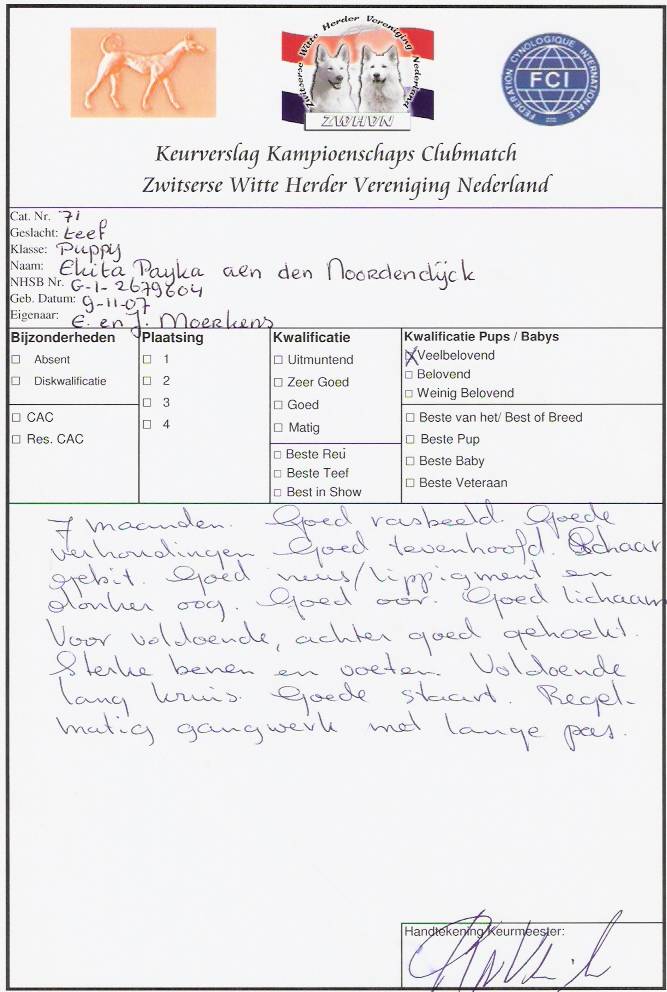 Zwitserse Witte Herder Vereniging Nederland
ZWHVN
FEDERATION CYNOLOGIQUE INTERNATIONALE
FCI
Keurverslag Kampioenschaps Clubmatch
Zwitserse Witte Herder Vereniging Nederland
Cat. Nr. 71
Geslacht: teef
Klasse: Puppy
Naam: Ekita Payka aen den Noordendijck
NHSB Nr. G-1-2679604
Geb. Datum: 9-11-07
Eigenaar: E. en J. Moerkens
Bijzonderheden Plaatsing Kwalificatie Kwalificatie Pups / Babys
Absent 1 Uitmuntend X Veelbelovend
Diskwalificatie 2 Zeer Goed Belovend
3 Goed Weinig Belovend
CAC 4 Matig Beste van het/ Best of Breed
Res. CAC Beste Reu Beste Pup
Beste Teef Beste Baby
Best in Show Beste Veteraan
7 maanden. Goed rasbeeld. Goede
verhoudingen Goed tevenhoofd. Schaar
gebit. Goed neus/lippigment en
donker oog. Goed oor. Goed lichaam
Voor voldoende, achter goed gehoekt.
Sterke benen en voeten. Voldoende
lang kruis. Goede staart. Regel-
matig gangwerk met lange pas.
Handtekening Keurmeester: